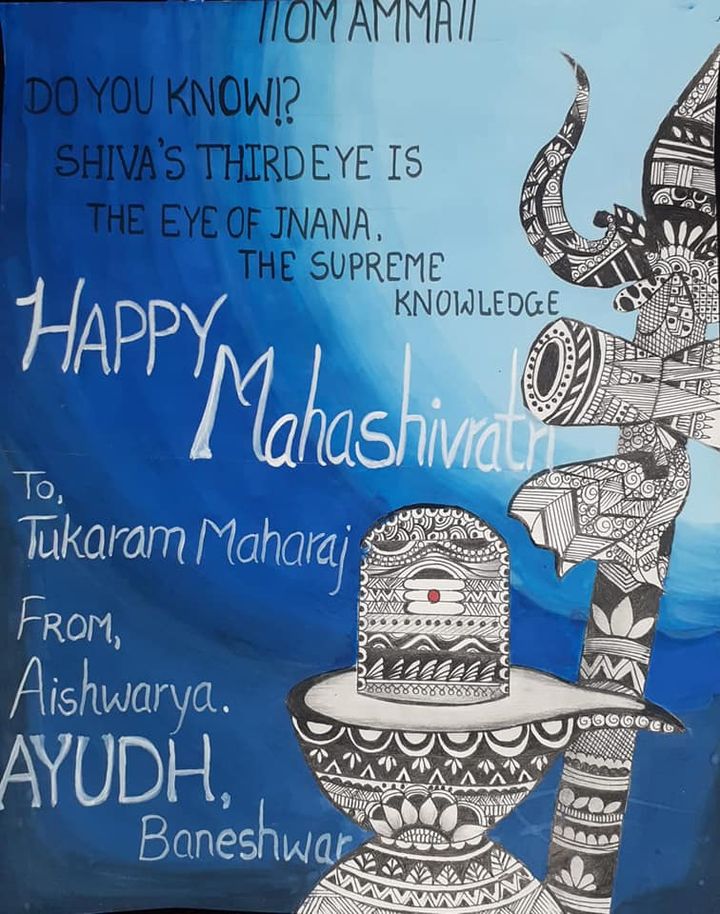 ||OM AMMA||
DO YOU KNOW!?
SHIVA'S THIRD EYE IS
THE EYE OF JNANA,
THE SUPREME
KNOWLEDGE
HAPPY
Mahashivratri
To,
Tukaram Maharaj
FROM,
Aishwarya.
AYUDH,
Baneshwar